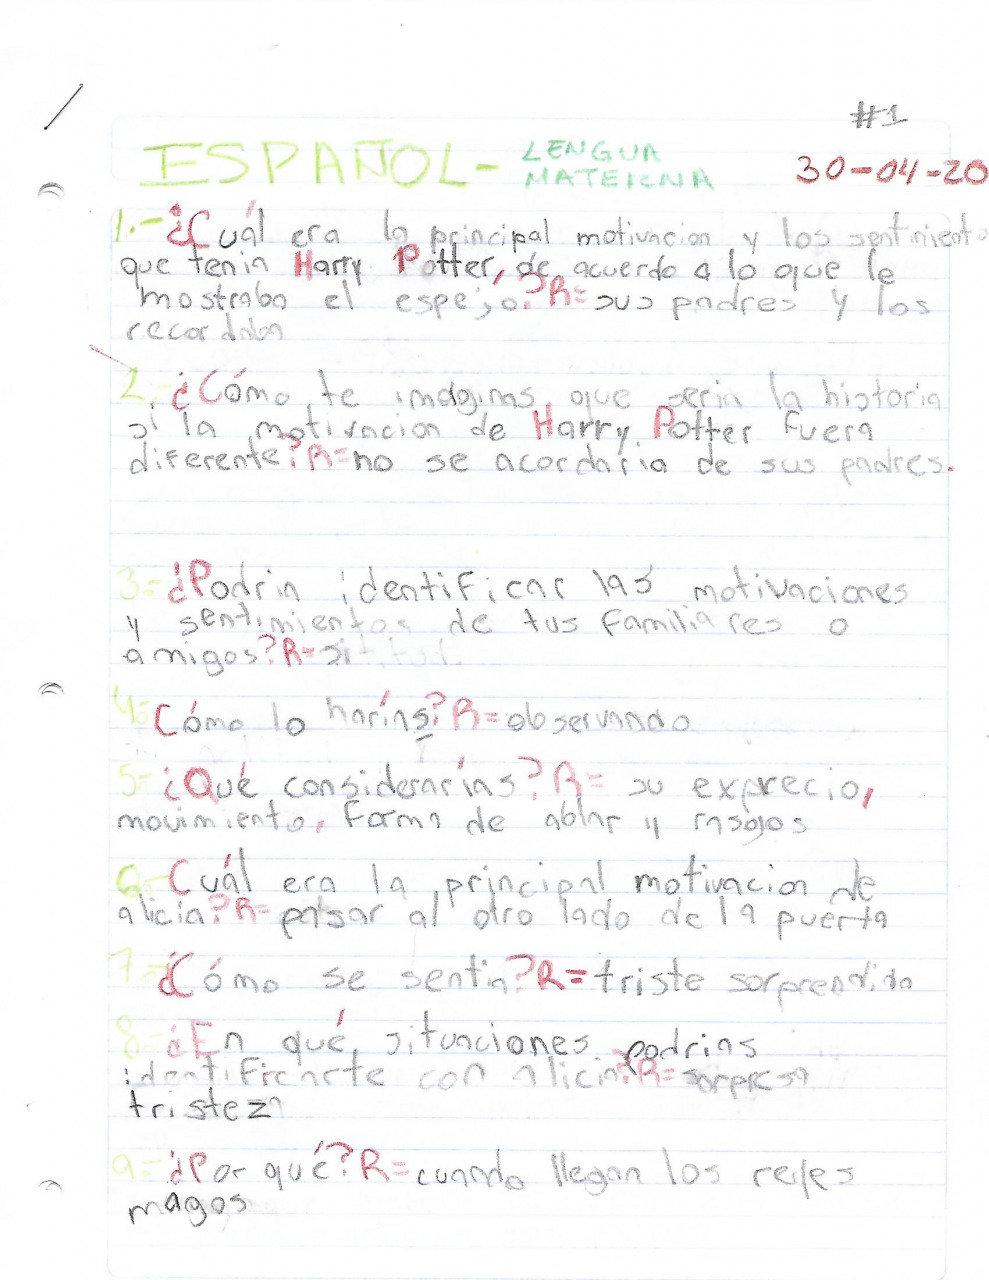 #1
ESPAÑOL- LENGUA
MATERNA 30-04-20
1.- ¿Cuál era la principal motivacion y los sentimiento
que tenia Harry Potter, de acuerdo a lo que le
mostraba el espejo? R= sus padres y los
recordaba
2.- ¿Cómo te imaginas que seria la historia
si la motivacion de Harry Potter fuera
diferente? R= no se acordaria de sus padres.
3- ¿Podria identificar las motivaciones
y sentimientos de tus familiares o
amigos? R= si
4- Cómo lo harías? R= observando
5- ¿Qué considerarías? R= su exprecio,
movimiento, forma de ablar y rasgos
6- Cuál era la principal motivacion de
alicia? R= pasar al otro lado de la puerta
7- ¿Cómo se sentia? R= triste sorprendida
8- ¿En qué situaciones podrias
identificarte con alicia? R= sorpresa
tristeza
9- ¿Por qué? R= cuando llegan los reyes
magos